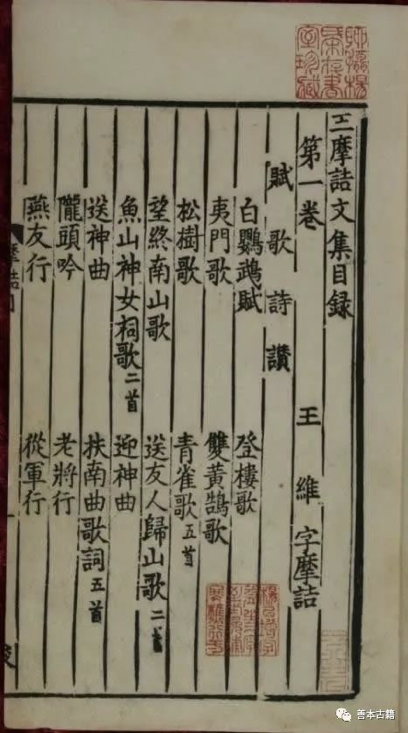 王摩詰文集目録
第一卷 王維字摩詰
賦歌詩讚
白鸚鵡賦 登樓歌
夷門歌 雙黃鵠歌
松樹歌 青雀歌五首
望終南山歌 送友人歸山歌二首
魚山神女祠歌二首 迎神曲
送神曲 扶南曲歌詞五首
隴頭吟 老將行
燕友行 從軍行
善本古籍